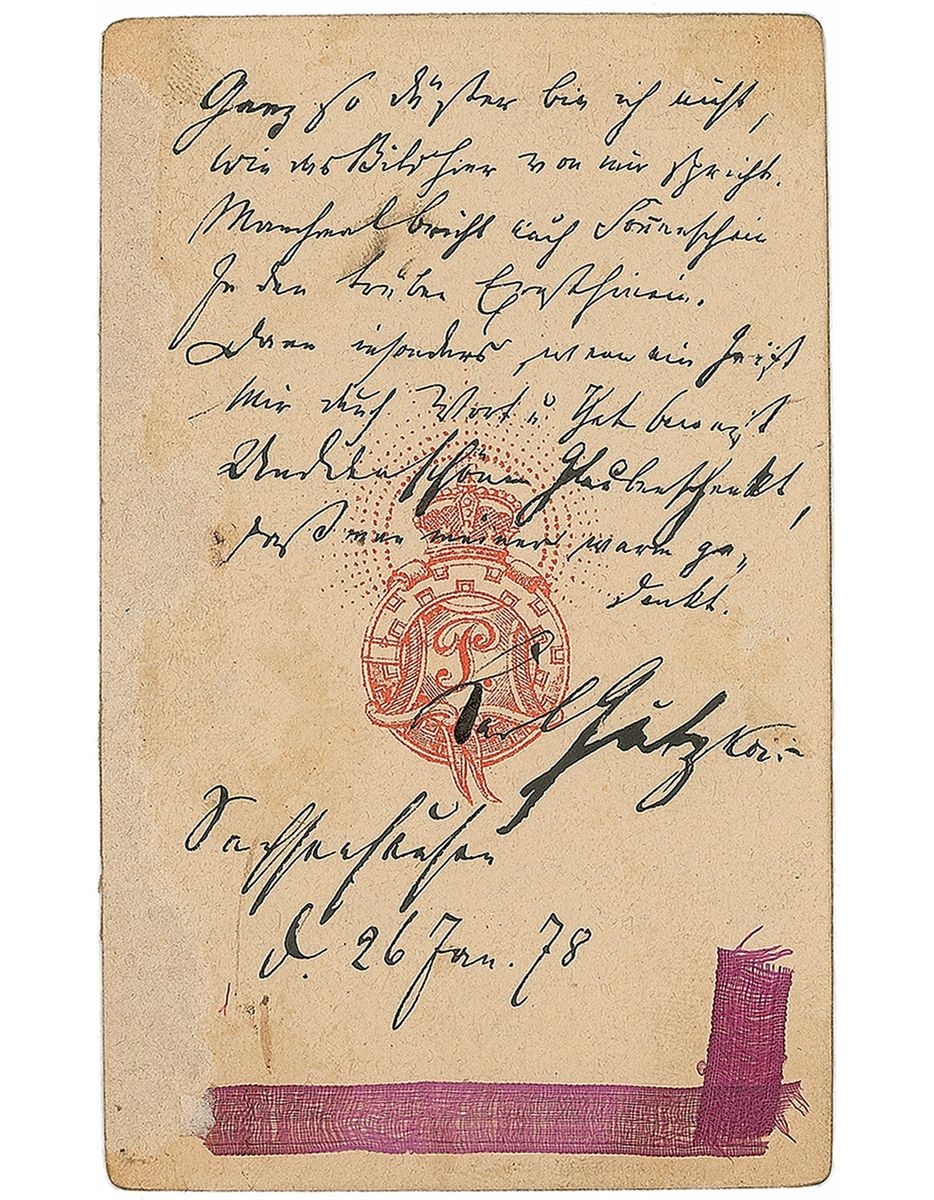 Ganz so düster bin ich nicht,
Wie das Bild hier von mir spricht.
Manchmal bricht auch Sonnenschein
In den trüben Ernst hinein.
Dann insonders, wenn ein Geist
Mir durch Wort u That beweist
Und den schönen Glauben schenkt,
Daß man meiner warm ge-
denkt.
Karl Gutzkow
Sachsenhausen
d. 26 Jan. 78
P.